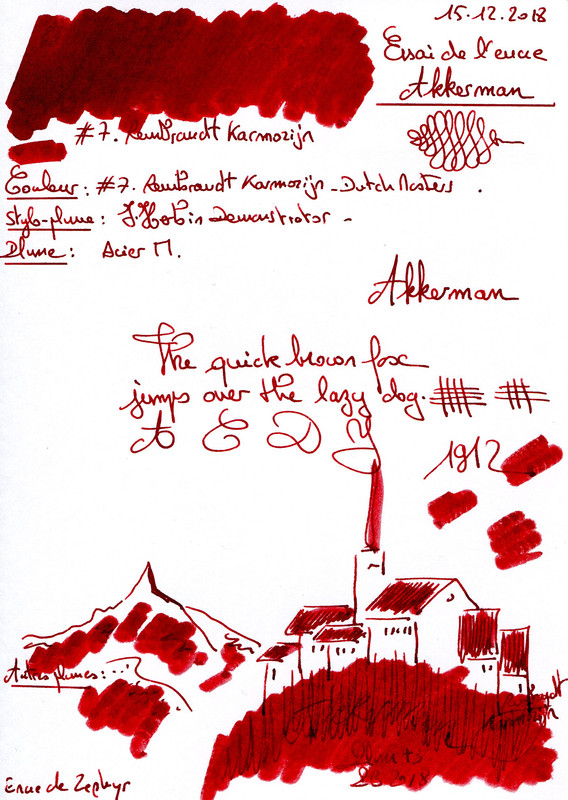 15.12.2018
Essai de l'encre
Akkerman
#7. Rembrandt Karmozijn
Couleur : #7. Rembrandt Karmozijn - Dutch Masters .
Stylo-plume : J. Herbin Demonstrator -
Plume : Acier M.
Akkerman
The quick brown fox
jumps over the lazy dog.
A E D Y
1912
Autres plumes : ...
Encre de Zephyr
2018